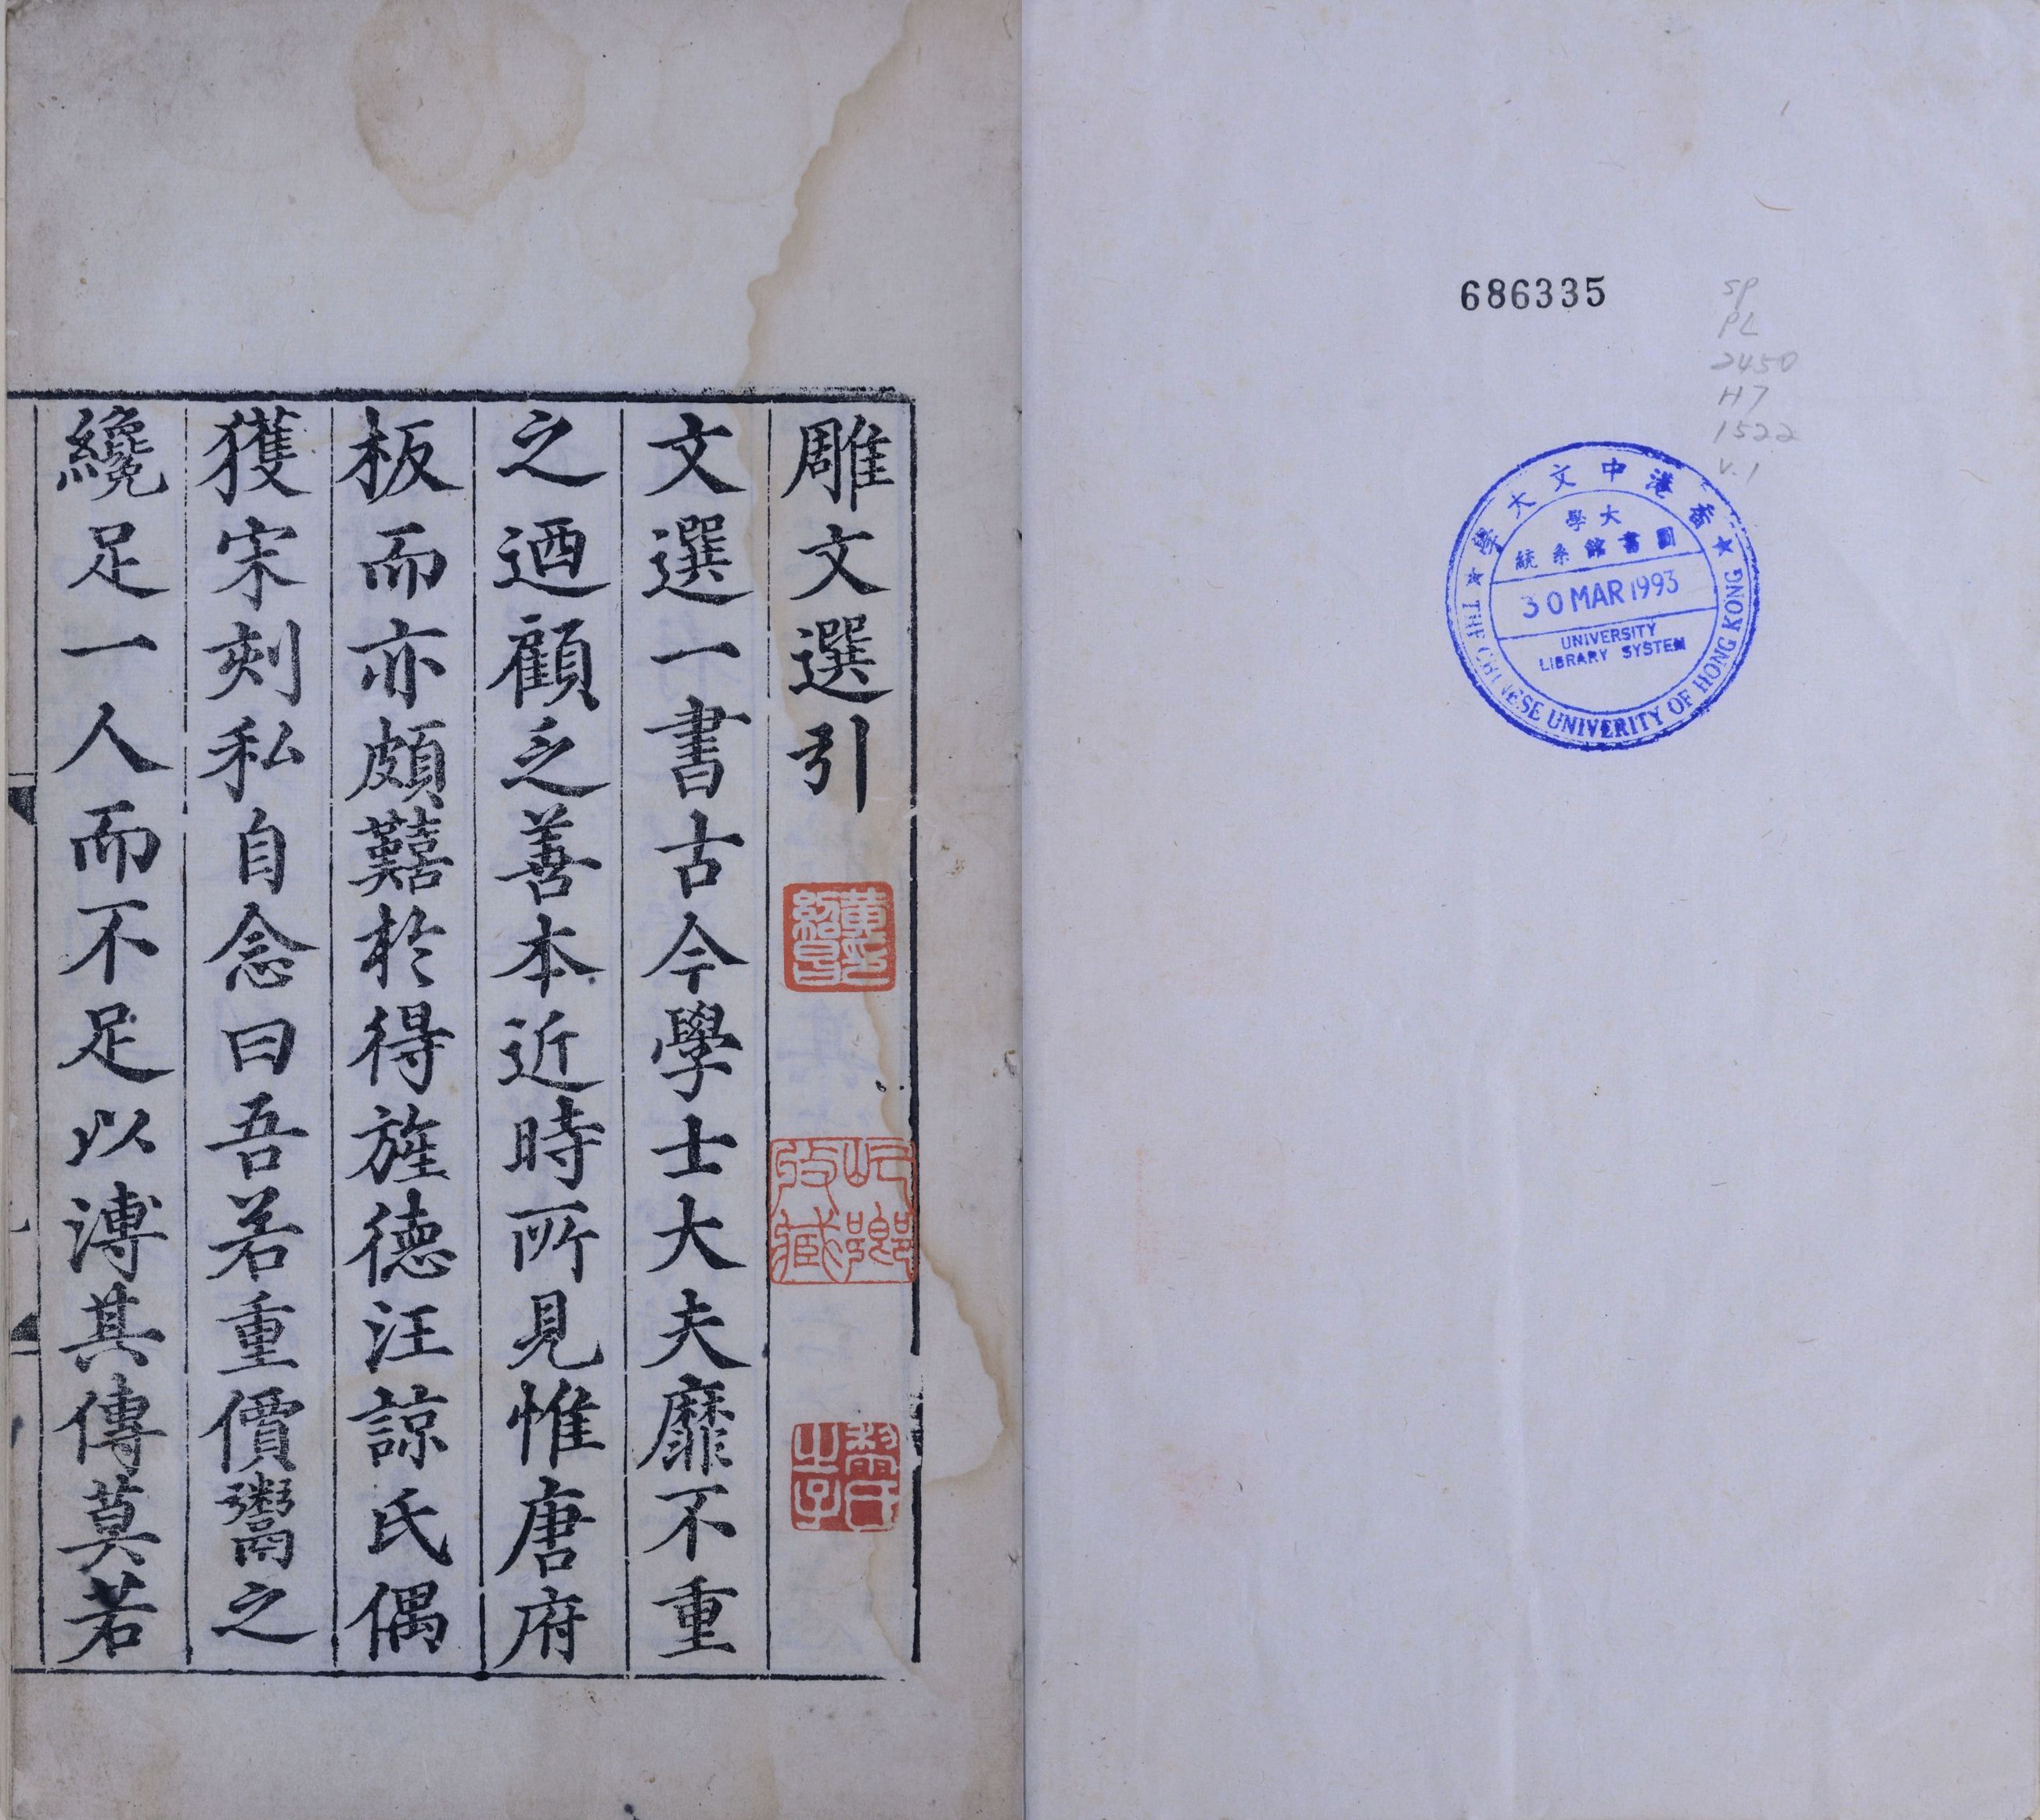 686335
SP
PL
2450
H7
1522
v.1
香港中文大學
大學
圖書館系統
30 MAR 1993
UNIVERSITY
LIBRARY SYSTEM
THE CHINESE UNIVERITY OF HONG KONG
雕文選引
文選一書古今學士大夫靡不重
之迺顧乏善本近時所見惟唐府
板而亦頗囏於得旌德汪諒氏偶
獲宋刻私自念曰吾若重價鬻之
纔足一人而不足以溥其傳莫若
黄印紹昌
收藏
之子